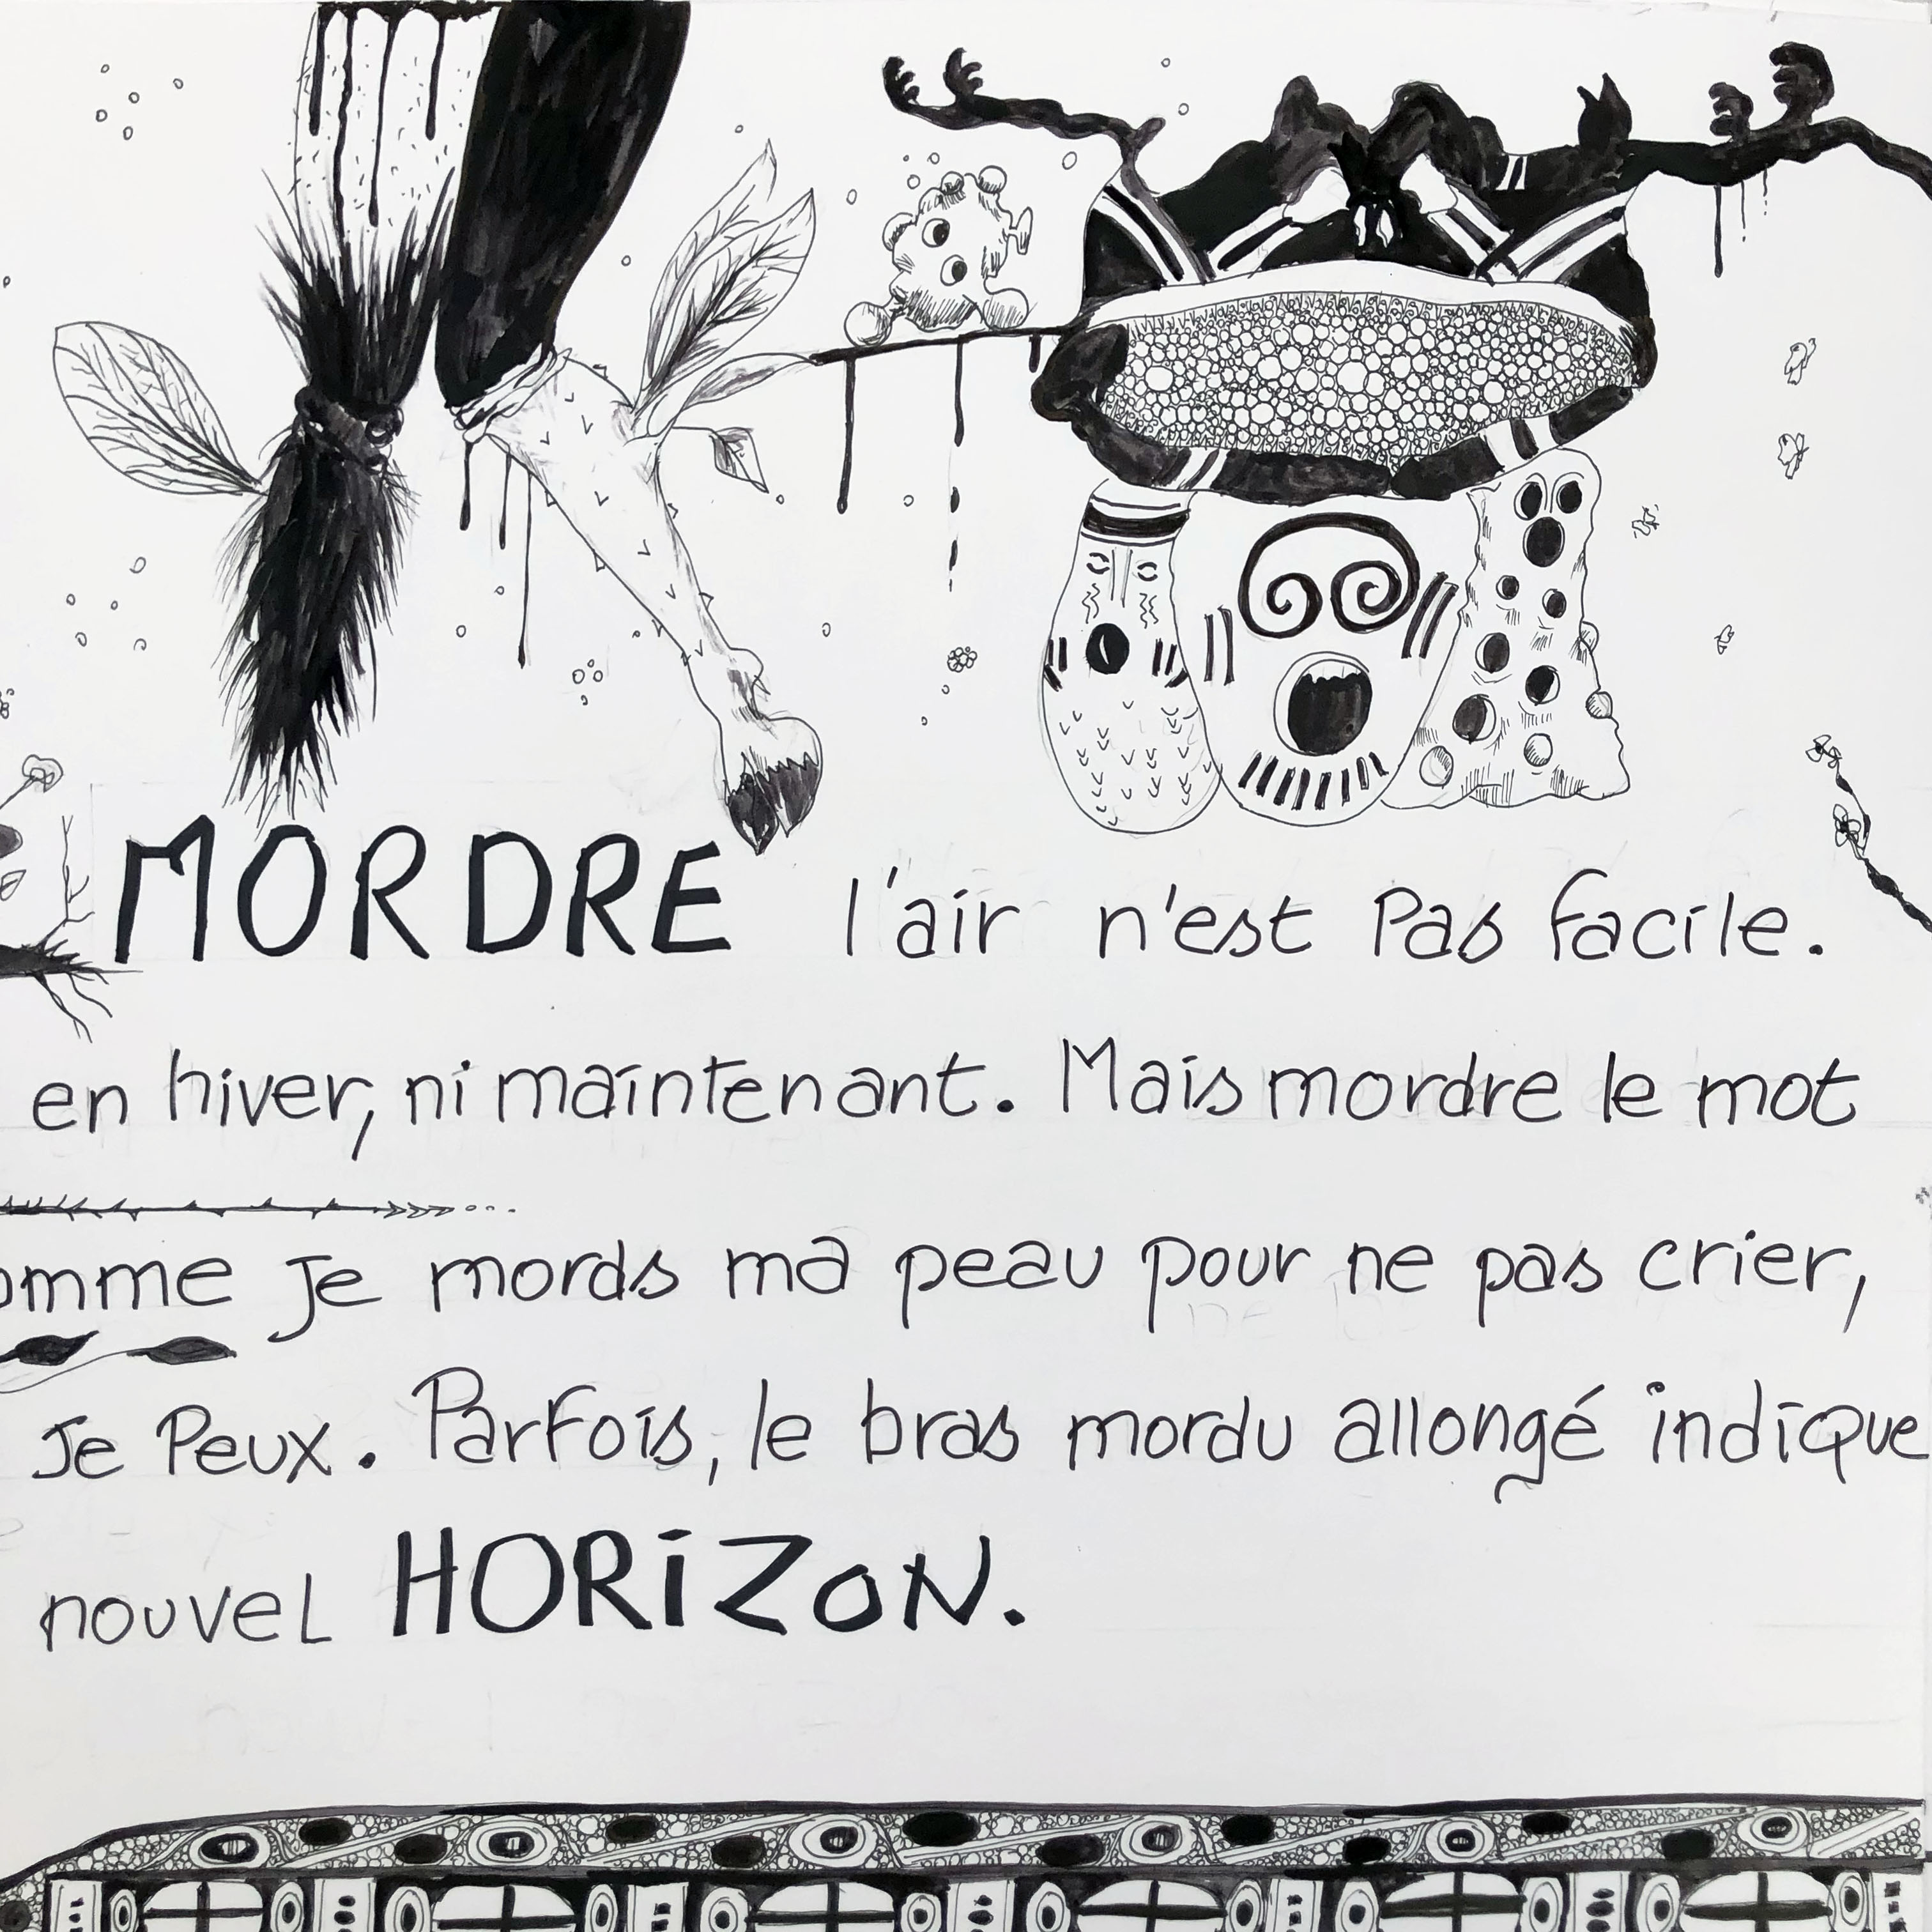 MORDRE l'air n'est Pas facile.
en hiver, ni maintenant. Mais mordre le mot
omme Je mords ma peau pour ne pas crier,
Je Peux. Parfois, le bras mordu allongé indique
nouvel HORiZoN.